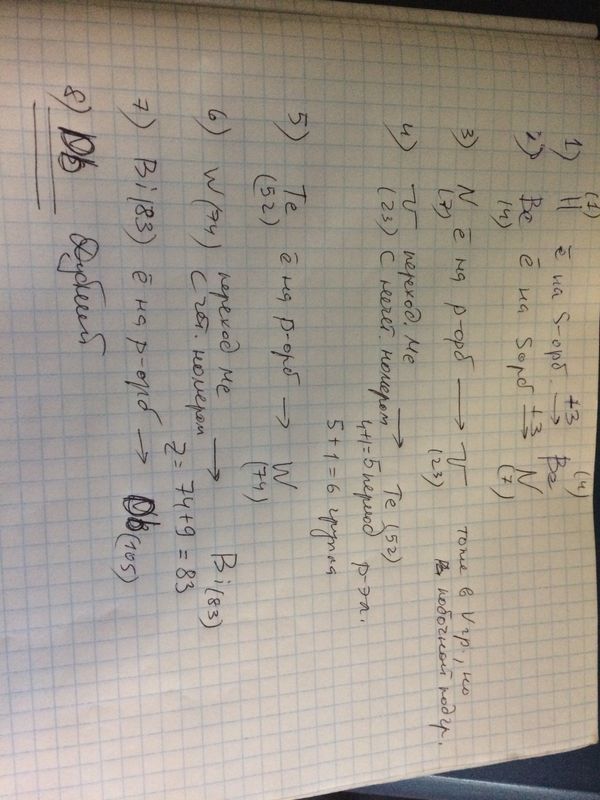 1) H ē на S-орб. +3 → Be
(1) (4)
2) Be ē на S орб +3 → N
(4) (7)
3) N ē на p-орб → V тоже в V гр., но
(7) (23) побочной подгр.
4) V переход. Me → Te (52)
(23) с нечёт. номером 4+1=5 период p-эл.
5+1=6 группа
5) Te ē на p-орб → W
(52) (74)
6) W(74) переход Me → Bi(83)
с чёт. номером Z=74+9=83
7) Bi(83) ē на p-орб → Db(105)
8) Db Дубний